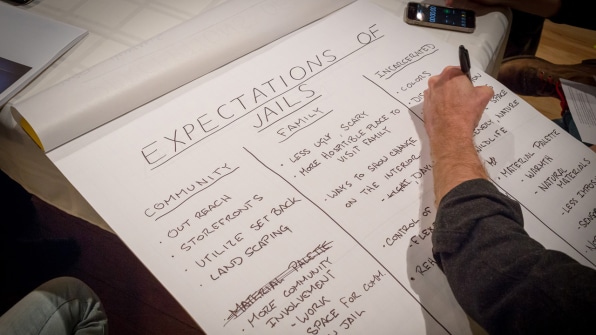 EXPECTATIONS OF
JAILS
COMMUNITY
· OUT REACH
· STOREFRONTS
· UTILIZE SET BACK
· LAND SCAPING
MATERIAL PALETTE
· MORE COMMUNITY
INVOLVEMENT
- WORK
SPACE FOR COMM.
JAIL
FAMILY
· LESS UGLY, SCARY
· MORE HOSPITABLE PLACE TO
VISIT FAMILY
· WAYS TO SHOW CHANGE
ON THE INTERIOR
- LIGHT,
· CONTROL OF
INCARCERATED
· COLORS
SPACE
NATURE
· MATERIAL PALETTE
- WARMTH
- NATURAL
MATERIALS
- LESS